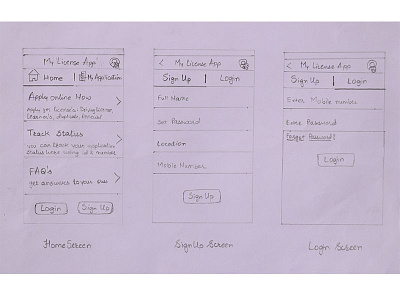 My License App
Home
My Application
Apply online Now
Apply for License - Driving license,
Learner's, duplicate, Renewal
Track Status
you can track your application
status here using id & number
FAQ's
get answers to your
Login
Sign Up
Home Screen
My License App
Sign Up
Login
Full Name
Set Password
Location
Mobile Number
Sign Up
Sign Up Screen
My License App
Sign Up
Login
Enter Mobile number
Enter Password
Forgot Password?
Login
Login Screen